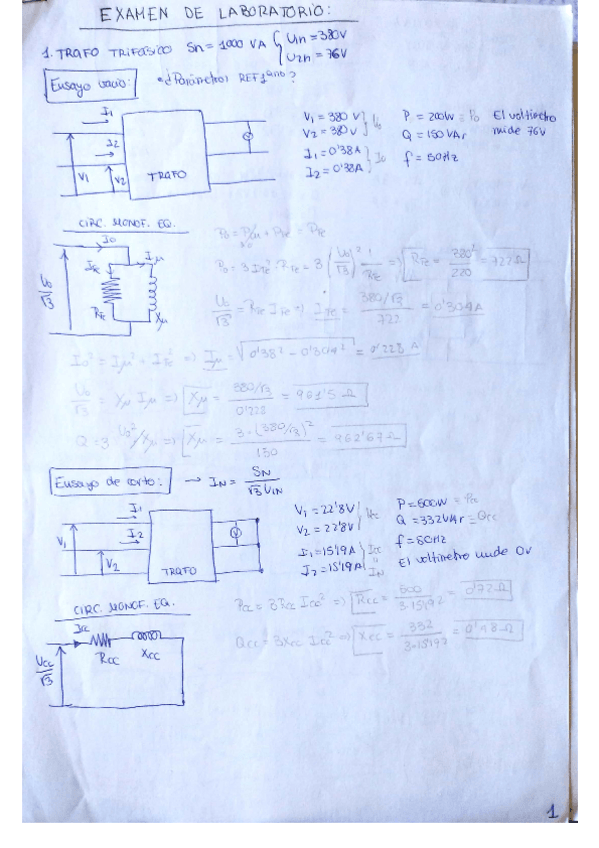 EXAMEN DE LABORATORIO:
1. TRAFO TRIFÁSICO Sn = 1000 VA { U1n = 380V
U2n = 76V
Ensayo vacío: ¿Parámetros REF 1ario?
I1
I2
V1
V2
TRAFO
V
V1 = 380 V } U0
V2 = 380 V
I1 = 0'38A } I0
I2 = 0'38A
P = 200W = P0
Q = 150 VAr
f = 50Hz
El voltímetro
mide 76V
CIRC. MONOF. EQ.
I0
IFe
Iμ
U0/√3
RFe
Xμ
P0 = Pcu + PFe = PFe
P0 = 3 IFe² · RFe = 3 (U0/√3)² · 1/RFe => RFe = 380²/200 = 722 Ω
U0/√3 = RFe IFe => IFe = 380/√3 / 722 = 0'304 A
I0² = Iμ² + IFe² => Iμ = √0'38² - 0'304² = 0'228 A
U0/√3 = Xμ Iμ => Xμ = 380/√3 / 0'228 = 961'5 Ω
Q = 3 U0²/Xμ => Xμ = 3·(380/√3)² / 150 = 962'67 Ω
Ensayo de corto: → IN = SN / √3 U1N
I1
I2
V1
V2
TRAFO
V
V1 = 22'8V } Ucc
V2 = 22'8V
I1 = 15'19A } Icc
I2 = 15'19A = IN
P = 500W = Pcc
Q = 332VAr = Qcc
f = 50Hz
El voltímetro mide 0V
CIRC. MONOF. EQ.
Icc
Ucc/√3
Rcc
Xcc
Pcc = 3 Rcc Icc² => Rcc = 500 / 3·15'19² = 0'72 Ω
Qcc = 3 Xcc Icc² => Xcc = 332 / 3·15'19² = 0'48 Ω
1